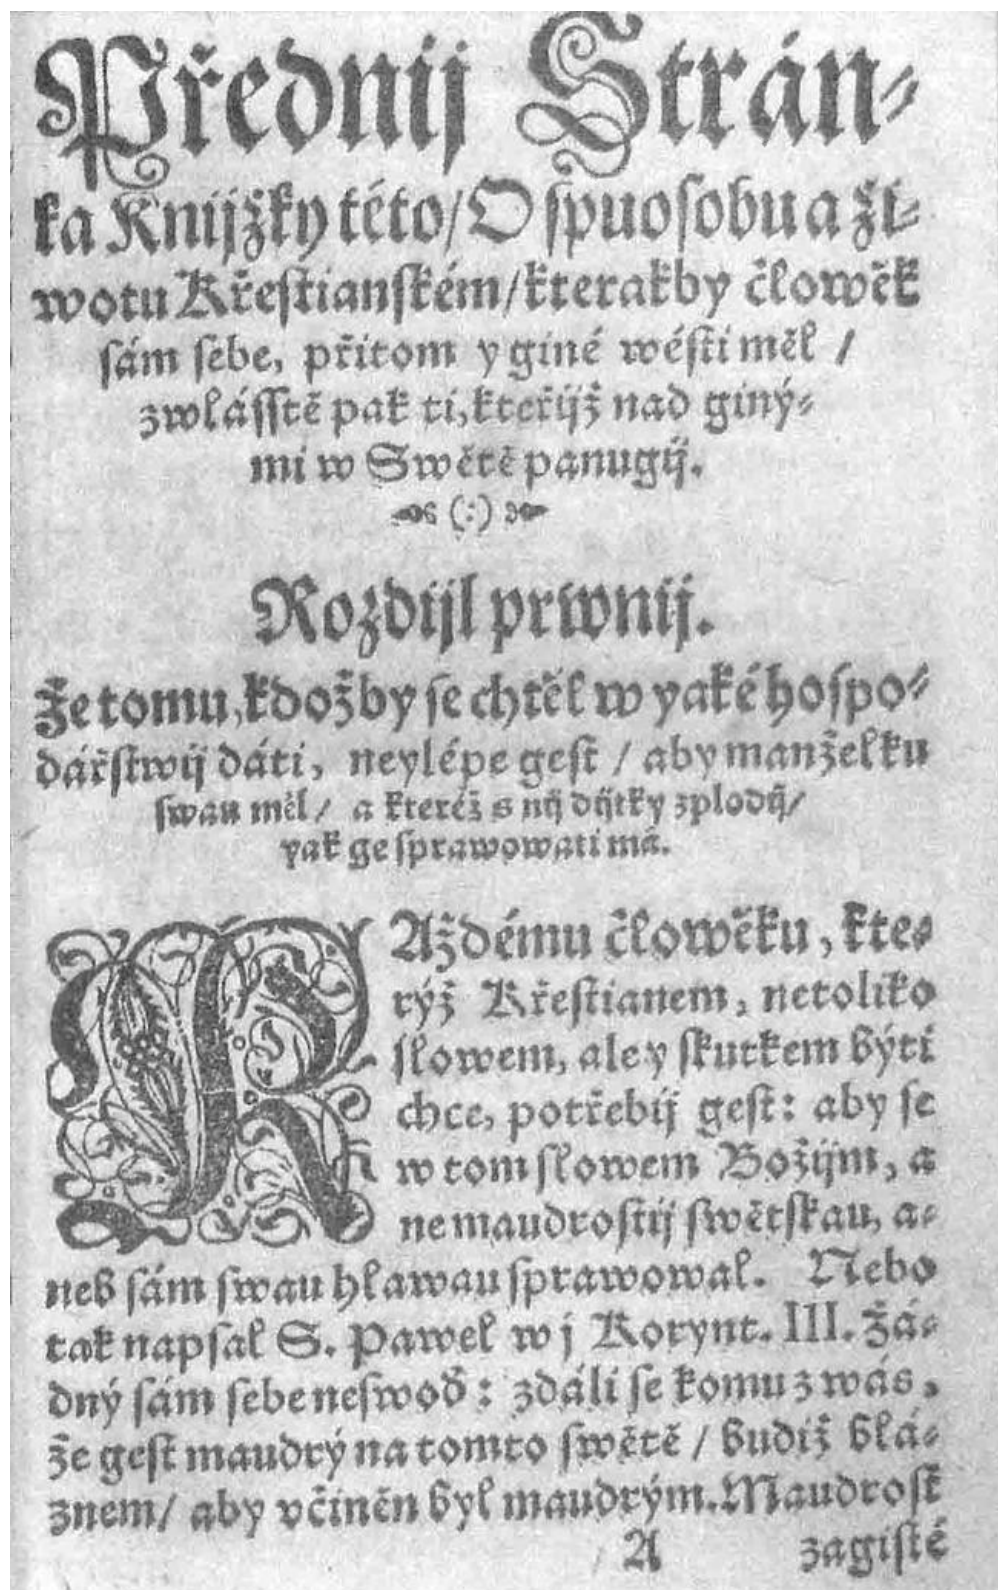 Přednij Strán-
ka Knijžky této/ O spuosobu a ži-
wotu Křestianském/ kterakby člowěk
sám sebe, přitom y giné wésti měl /
zwlásstě pak ti, kteřijž nad giný-
mi w Swětě panugij.
(:)
Rozdijl prwnij.
Že tomu, kdožby se chtěl w yaké hospo-
dářstwij dáti, neylépe gest / aby manželku
swau měl / a kteréž s nij dijtky zplodij/
yak ge sprawowati má.
KAždému člowěku, kte-
rýž Křestianem, netoliko
slowem, ale y skutkem býti
chce, potřebij gest: aby se
w tom slowem Božijm, a
ne maudrostij swětskau, a-
neb sám swau hlawau sprawowal. Nebo
tak napsal S. Pawel w j Korynt. III. Žá-
dný sám sebe neswoď: zdáli se komu z wás,
že gest maudrý na tomto swětě / budiž blá-
znem/ aby včiněn byl maudrým. Maudrost
A zagisté